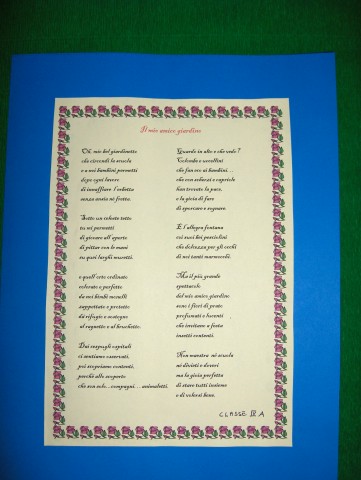 Il mio amico giardino
Oh mio bel giardinetto
che circondi la scuola
e a noi bambini permetti
dopo ogni lavoro
di innaffiare l'erbetta
senza avere né fretta.
Sotto un celeste tetto
tu mi permetti
di giocare all'aperto
di pittar con le mani
su quei larghi muretti.
e quell'orto ordinato
colorato e perfetto
da noi bimbi monelli
rispettato e protetto
dà rifugio e sostegno
al ragnetto e al bruchetto.
Dai cespugli ospitali
ci sentiamo osservati,
poi scopriamo contenti,
perché allo scoperto
che son solo...compagni... animaletti.
Guardo in alto e che vedo?
Colombe e uccellini
che fan cra ai bambini...
che con scherzi e capricci
han trovato la pace,
e la gioia di fare
di sporcare e sognare
E l'allegra fontana
coi suoi bei pesciolini
che dolcezza per gli occhi
di noi tanti marmocchi.
Ma il più grande
spettacolo
del mio amico giardino
sono i fiori di prato
profumati e lucenti
che invitano a festa
insetti contenti.
Non maestre né scuola
né divieti e doveri
ma la gioia perfetta
di stare tutti insieme
e di volersi bene.
CLASSE III A